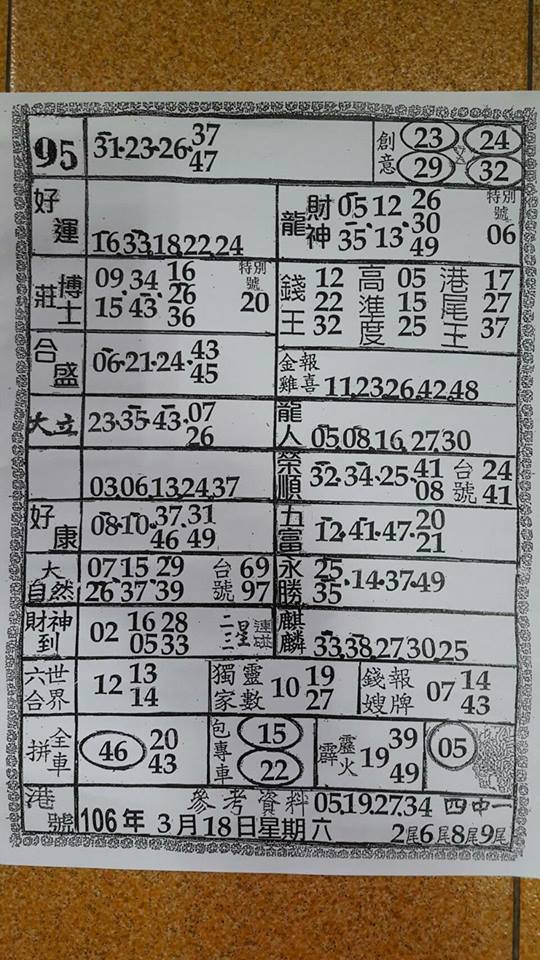 95 31·23·26·37 47 創意 23 24 29 32
好運 16,33,18,22,24 龍財神 05 12 26 35 13 30 49 特別號 06
莊博士 09 34 16 15 43 26 36 特別號 20 錢王 12 22 32 高進度 05 15 25 港尾王 17 27 37
合盛 06·21·24·43 45 金雞報喜 11,23,26,42,48
大立 23·35·43·07 26 龍人 05,08,16,27,30
03,06,13,24,37 榮順 32·34·25·41 08 台號 24 41
好康 08·10·37·31 46 49 五富 12·41·47·20 21
大自然 07 15 29 26·37·39 台號 69 97 永勝 25 35·14·37·49
財神到 02 16 28 05 33 二三星連碰 麒麟 33,38,27,30,25
六合世界 12 13 14 獨家靈數 10 19 27 錢嫂報牌 07 14 43
拼全車 46 20 43 包專車 15 22 霹靂火 19 39 49 05
港號 參考資料 05,19,27,34 四中一
106年 3月18日星期六 2尾6尾8尾9尾